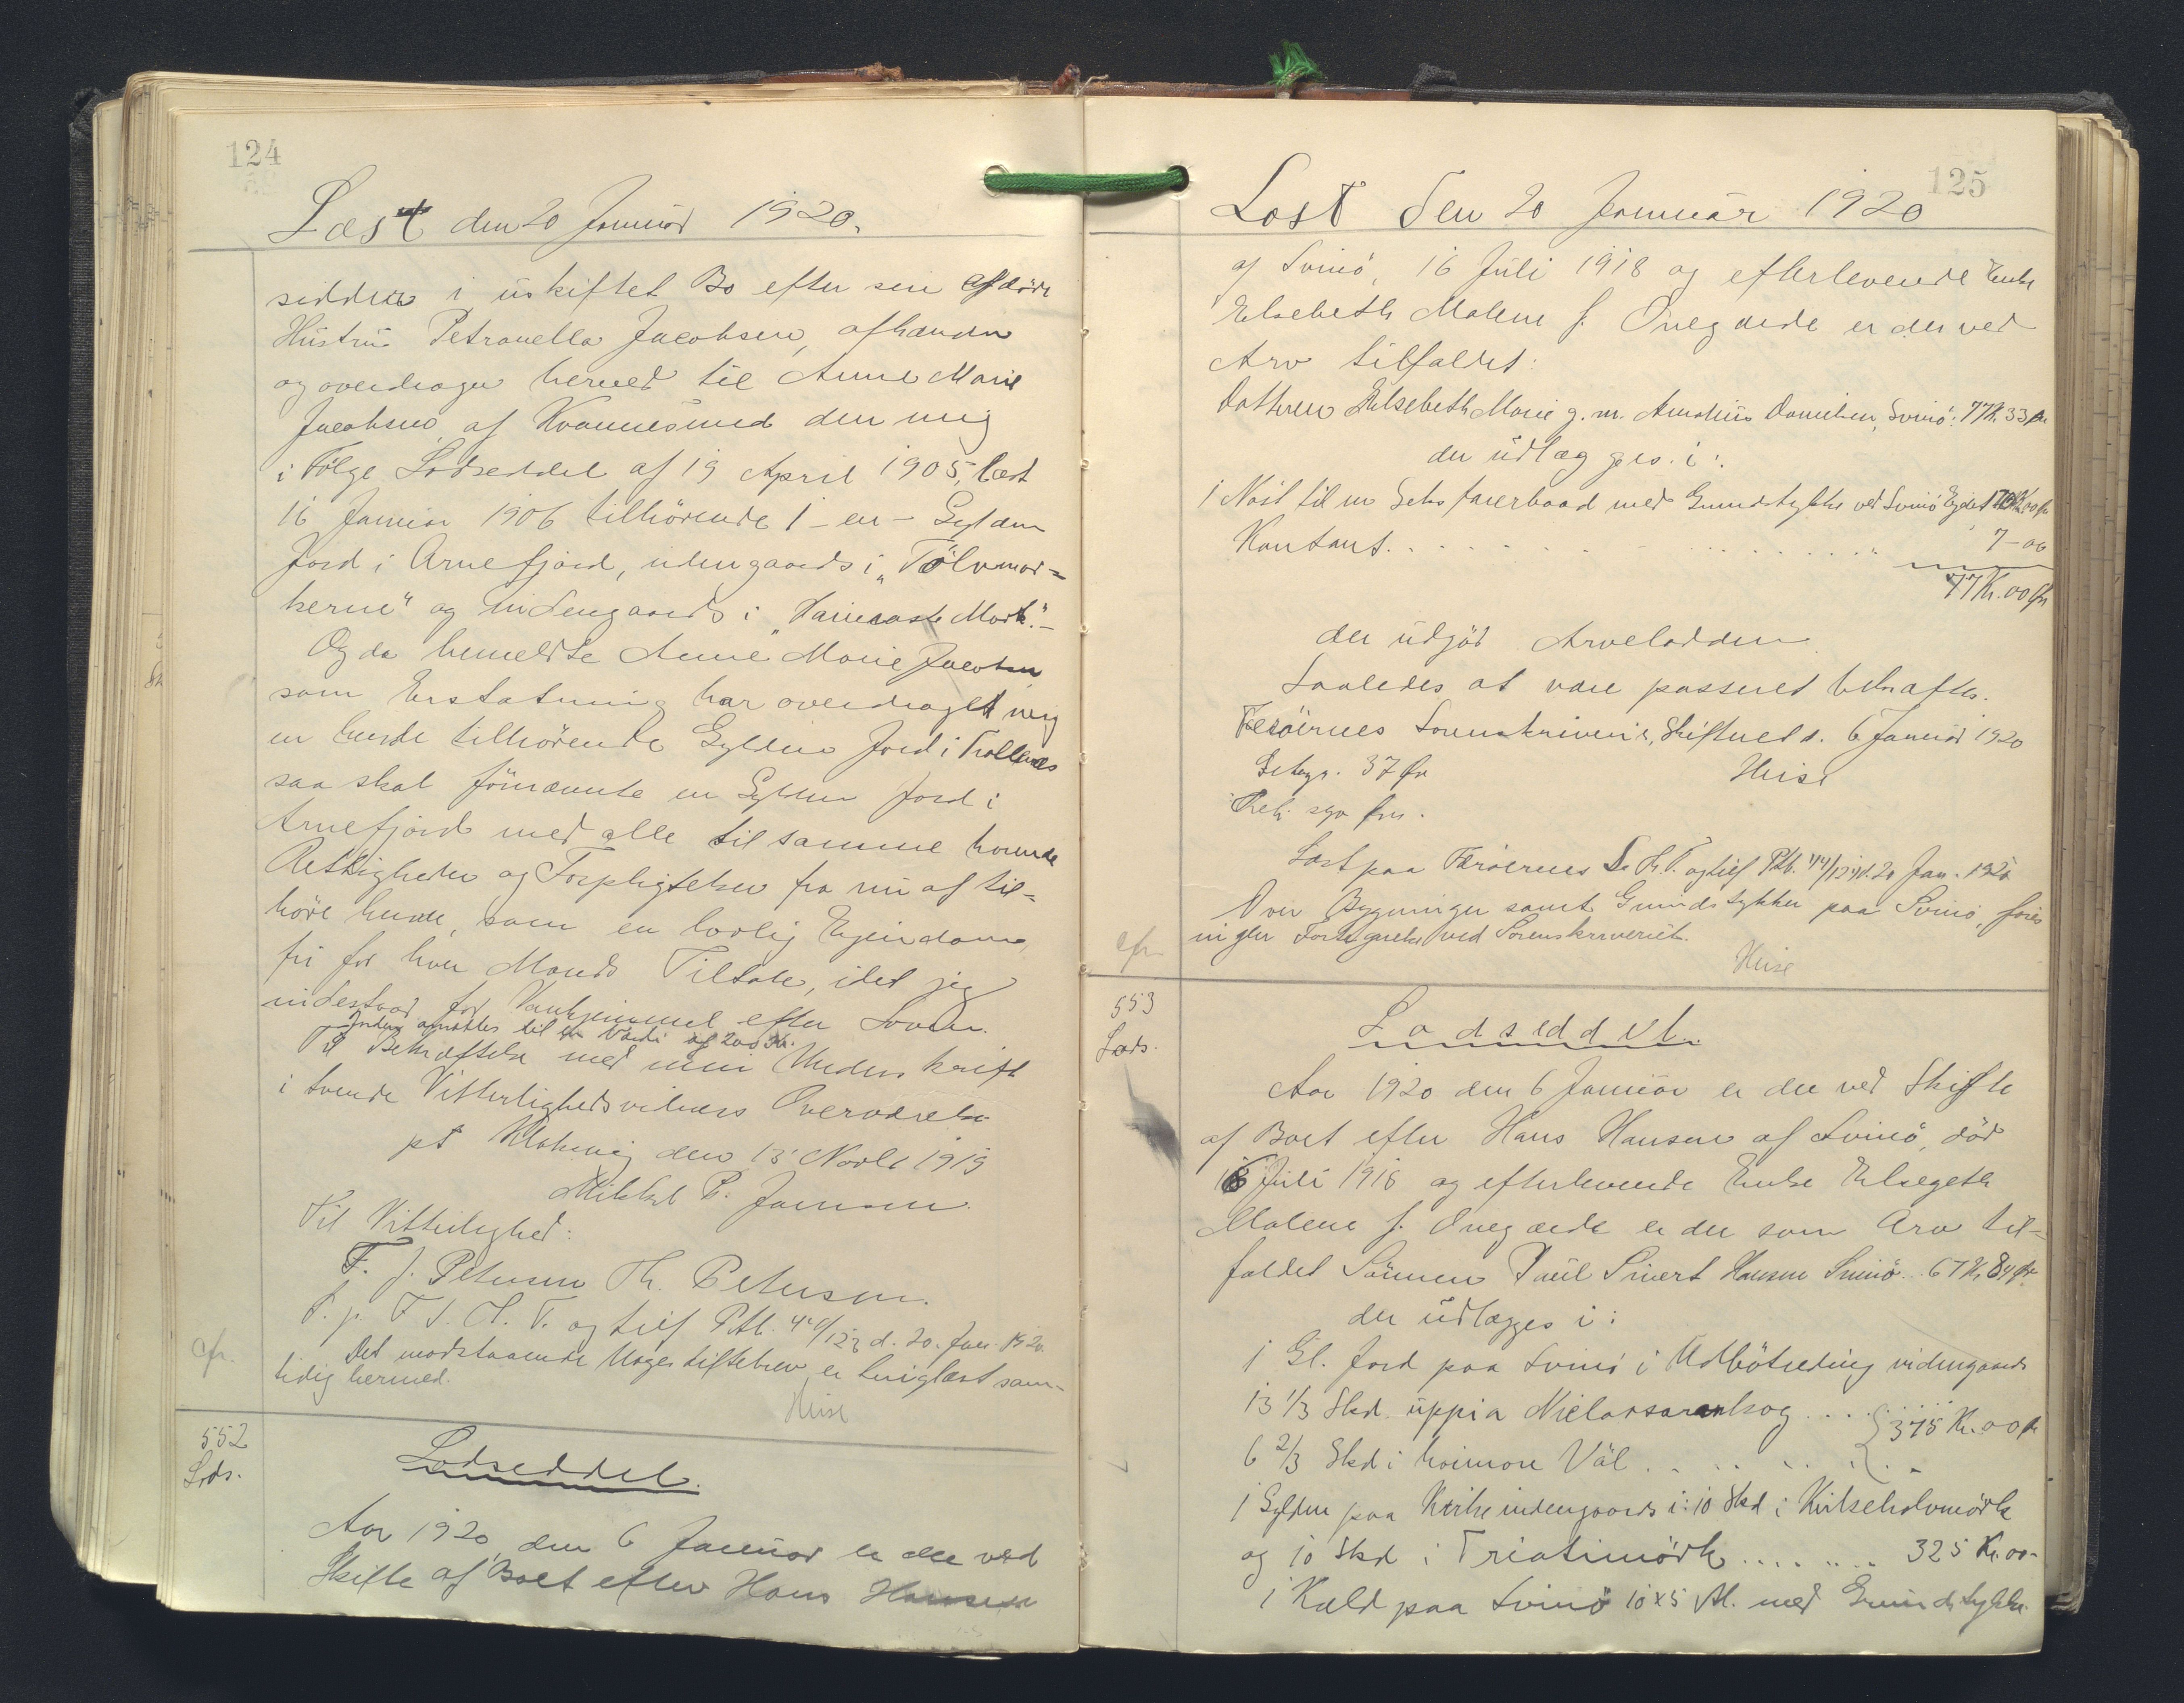 124
Læst den 20 Januar 1920.
siddende i uskiftet Bo efter sin afdöde
Hüstrü Petronella Jacobsen, afhænder
og overdrager herved til Anne Marie
Jacobsen af Kvannesund den mig
i Følge Lodseddel af 19 April 1905, læst
16 Januar 1906 tilhörende 1 - en - Gylden
Jord i Arnefjord, udengaards i "Tölvmar-
kerne" og indengaards i
Og da bemeldte Anne Marie Jacobsen
som Erstatning har overdraget mig
en hende tilhörende Gylden Jord i Trollenæs
saa skal förnævnte en Gylden Jord i
Arnefjord med alle til samme hörende
Rettigheder og Forpligtelser fra nu af til-
höre hende, som en lovlig Ejendom
fri for hver Mands Tiltale, idet jeg
indestaar for Vanhjemmel efter Loven.
Jorden ansættes til en Værdi af 200 Kr.
Til Bekræftelse med min Underskrift
i tvende Vitterlighedsvidners Overværelse
pt Klaksvig den 15 Novbr 1919
Mikkel P. Joensen.
Til Vitterlighed:
F. J. Petersen Th. Petersen.
og tilf Ptb. d. 20. Jan. 1920.
cfr.
Det modstaaende Mageskiftebrev er tinglæst sam-
tidig hermed.
Heise
552
Lods.
Lodseddel.
Aar 1920 den 6 Januar er der ved
Skifte af Boet efter Hans Hansen
125
Læst den 20 Januar 1920
af Svinö, 16 Juli 1918 og efterlevende Enke
Elsebeth Malene f. Öregaerde er der ved
Arv tilfaldet:
Datteren Elsebeth Marie g. m. Danielsen, Svinö: 77 Kr. 33 Øre
der udlægges i:
1 Nöst til en Seksfaverbaad med Grundstykke ved Svinö 70 Kr. 00 Øre
Kontant. . . . . . . . . . . . 7 - 00
77 Kr. 00 Øre
der udgör Arvelodden.
Saaledes at være passeret bekræftes.
Færöernes Sorenskriveri, Skifteret d. 6 Januar 1920
Gebyr. 37 Øre
Heise
Læst paa Færöernes og tilf Ptb. d. 20 Jan. 1920
Over Bygninger samt Grundstykker paa Svinö, föres
ingen Fortegnelse ved Sorenskriveriet.
cfr.
Heise
553
Lods.
Lodseddel.
Aar 1920 den 6 Januar er der ved Skifte
af Boet efter Hans Hansen af Svinö, död
16 Juli 1918 og efterlevende Enke Elsegeth
Malene f. Öregaerde er der som Arv til-
faldet Sönnen Paül Sivert Hansen Svinö . . 67 Kr. 84 Øre
der udlægges i:
1 Gl. Jord paa Svinö i Udbötrediing indengaards
13 1/3 Skd. uppi a . . . .
375 Kr. 00 Øre
6 2/3 Skd i heimare Väl . . . . .
1 Gylden paa Kirke indengaards i: 10 Skd i Kirkeholvmörk
og 10 Skd i Triatimörk . . . . . . 325 Kr. 00 -
1 Kæld paa Svinö 10 x 5 Al. med Grundstykke.